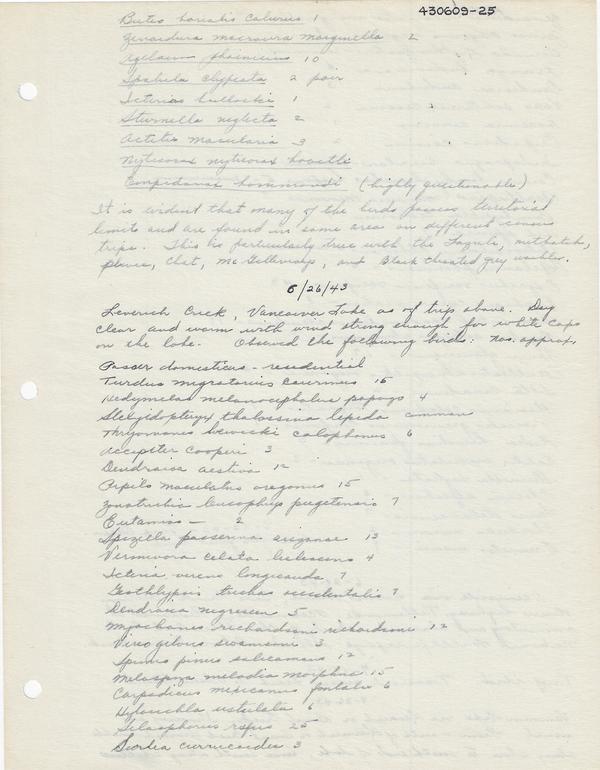 430609-25
Buteo borealis calurus 1
Zenaidura macroura marginella 2
Agelaius phoenicius 10
Spatula clypeata 2 pair
Icterius bullocki 1
Sturnella neglecta 2
Actitis macularia 3
Nyticorax nyticorax hoactli
Empidonax hammondi (highly questionable)
It is evident that many of the birds possess territorial
limits and are found in same area on different census
trips. This is particularly true with the Lazuli, nuthatch,
Chat, McGillivrays, and Black throated grey warbler.
5/26/43
Leverich Creek, Vancouver Lake as of trip above. Day
clear and warm with wind strong enough for white caps
on the lake. Observed the following birds. nos. approx.
Passer domesticus - residential
Turdus migratorius caurinus 15
Hedymelas melanocephalus papago 4
Stelgidopteryx thalassina lepida common
Thryomanes bewicki calophonus 6
Accipiter cooperi 3
Dendroica aestiva 12
Pipilo maculatus oregonus 15
Zonotrichia leucophrys pugetensis 7
Eutamias — 2
Spizella passerina arizonae 13
Vermivora celata lutescens 4
Icteria virens longicauda 7
Geothlypis trichas occidentalis 7
Dendroica nigrescens 5
Myiochanes richardsoni richardsoni 12
Vireo gilvus swansoni 3
Spinus pinus salicamans 12
Melospiza melodia morphna 15
Carpodicus mexicanus frontalis 6
Hylocichla ustulata 6
Selasphorus rufus 25
Siailia currucoides 3